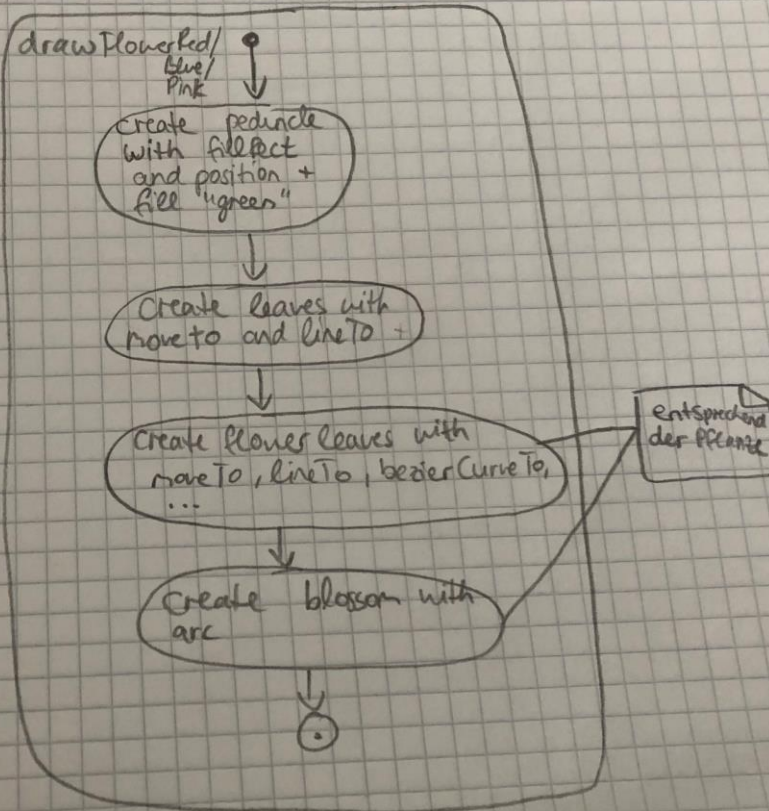 drawFlowerRed/
Blue/
Pink
create peduncle
with fillRect
and position +
fill "green"
create leaves with
moveto and lineTo +
create flower leaves with
moveTo, lineTo, bezierCurveTo,
...
create blossom with
arc
entsprechend
der Pflanze